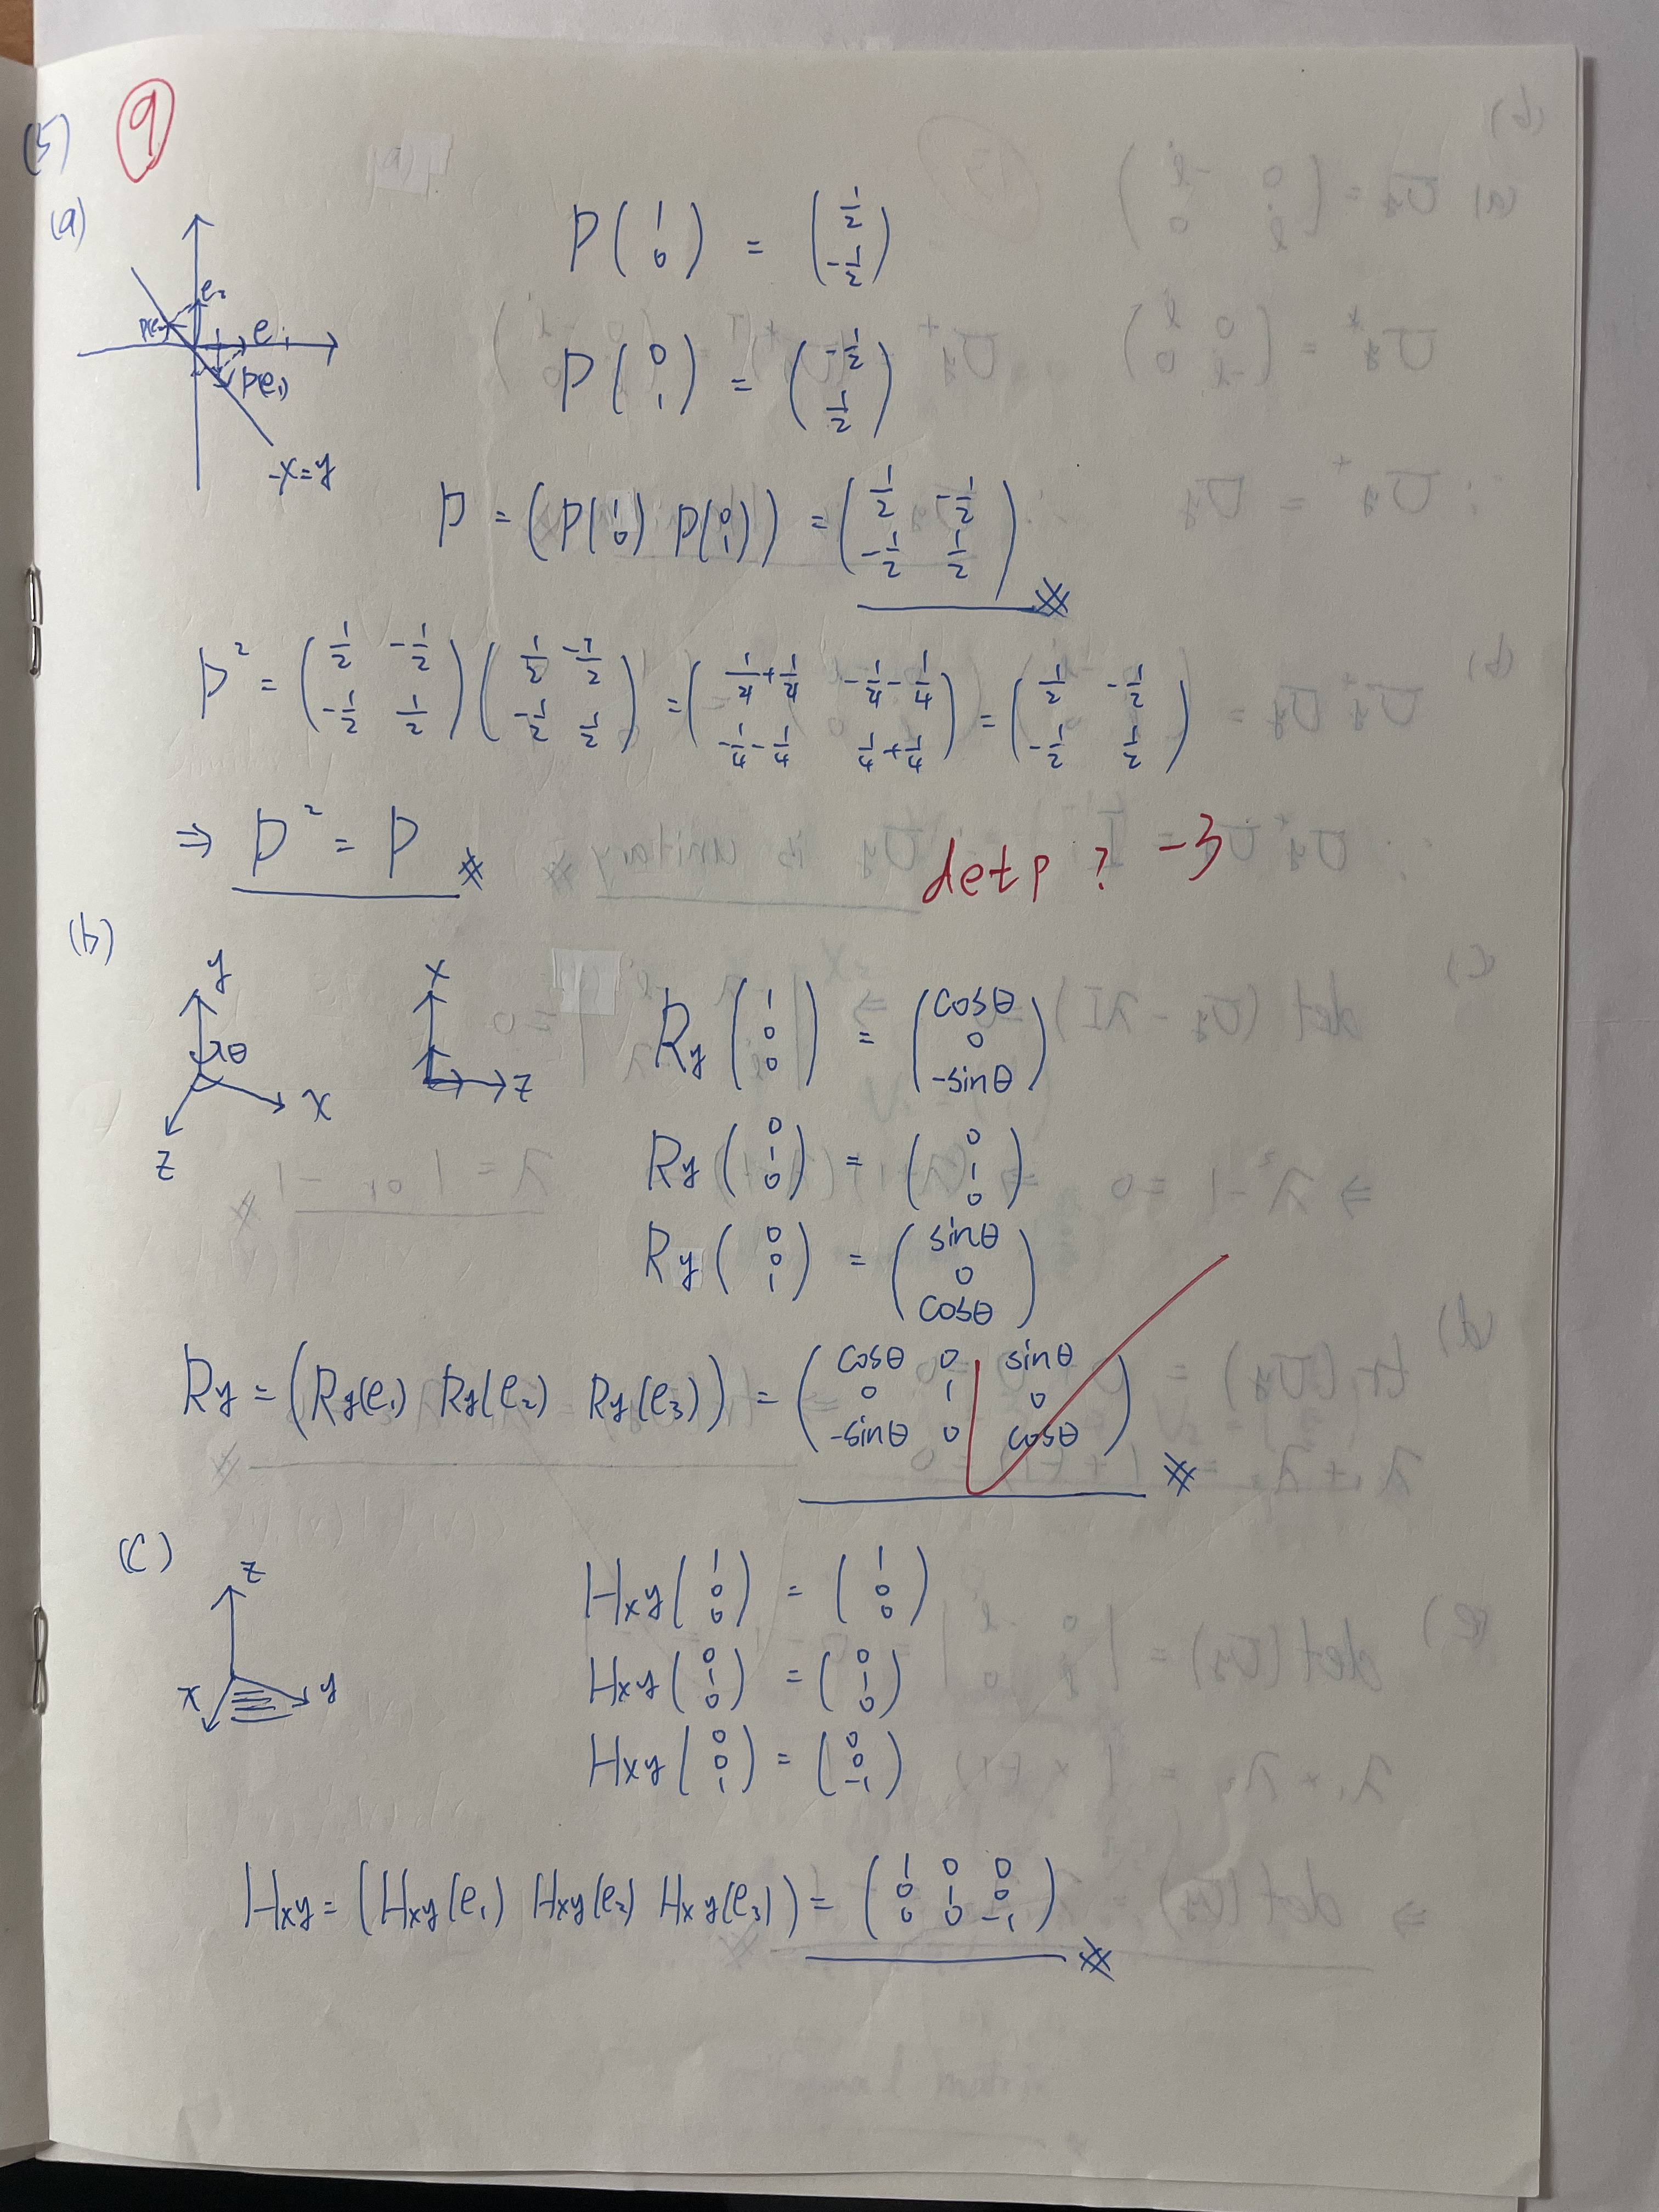 (5) 9
(a)
e₂
P(e₂)
e₁
P(e₁)
-x=y
P(1 0) = (1/2 -1/2)
P(0 1) = (-1/2 1/2)
P = (P(1 0) P(0 1)) = (1/2 -1/2 -1/2 1/2)
P² = (1/2 -1/2 -1/2 1/2)(1/2 -1/2 -1/2 1/2) = (1/4+1/4 -1/4-1/4 -1/4-1/4 1/4+1/4) = (1/2 -1/2 -1/2 1/2)
⇒ P² = P
det P ? -3
(b)
y
θ
x
z
x
z
Ry(1 0 0) = (cosθ 0 -sinθ)
Ry(0 1 0) = (0 1 0)
Ry(0 0 1) = (sinθ 0 cosθ)
Ry = (Ry(e₁) Ry(e₂) Ry(e₃)) = (cosθ 0 sinθ 0 1 0 -sinθ 0 cosθ)
(c)
z
x
y
Hxy(1 0 0) = (1 0 0)
Hxy(0 1 0) = (0 1 0)
Hxy(0 0 1) = (0 0 -1)
Hxy = (Hxy(e₁) Hxy(e₂) Hxy(e₃)) = (1 0 0 0 1 0 0 0 -1)